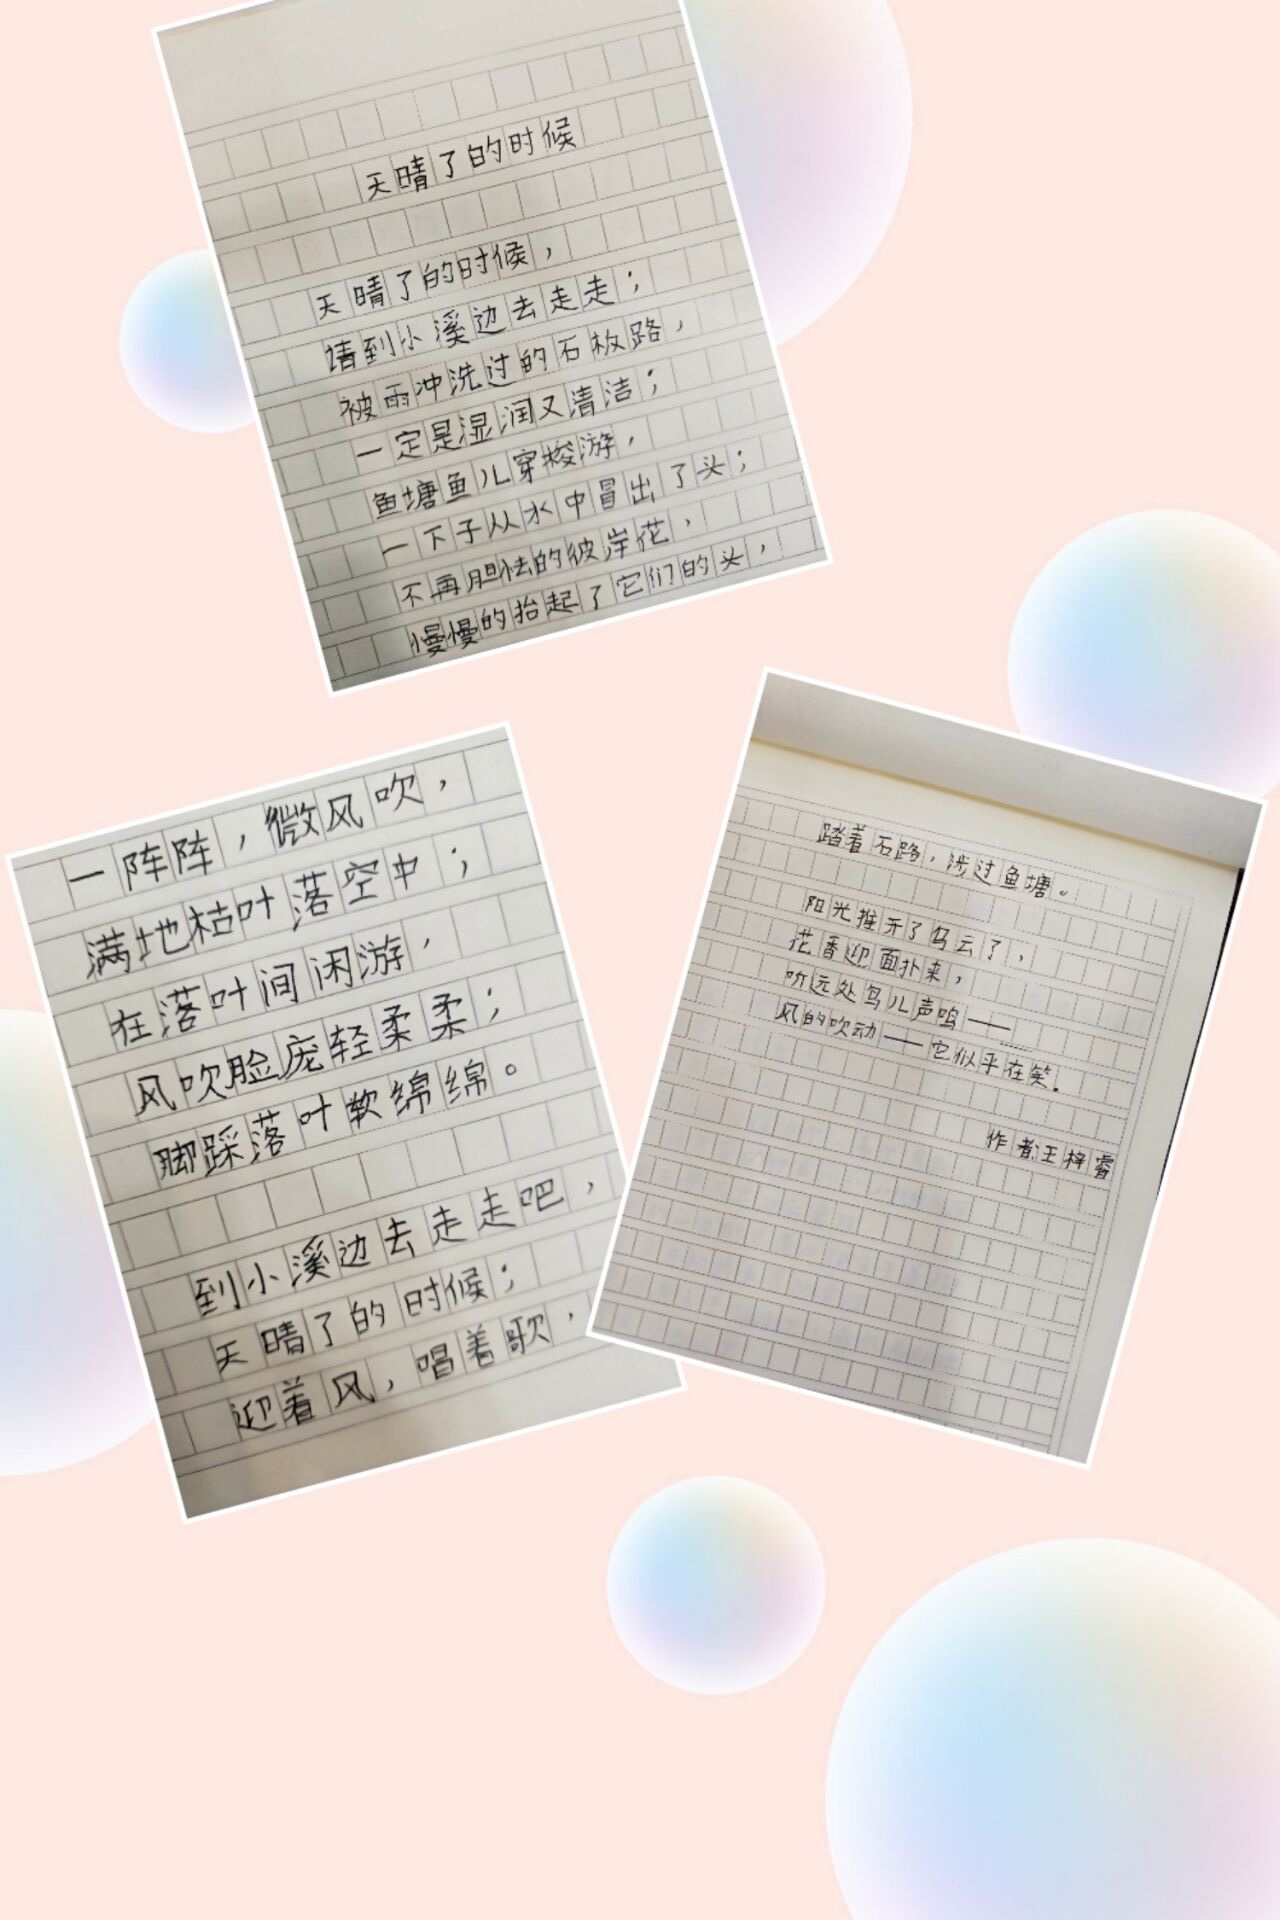 天晴了的时候
天晴了的时候，
请到小溪边去走走；
被雨冲洗过的石板路，
一定是湿润又清洁；
鱼塘鱼儿穿梭游，
一下子从水中冒出了头；
不再胆怯的彼岸花，
慢慢的抬起了它们的头，
一阵阵，微风吹，
满地枯叶落空中；
在落叶间闲游，
风吹脸庞轻柔柔；
脚踩落叶软绵绵。
到小溪边去走走吧，
天晴了的时候；
迎着风，唱着歌，
踏着石路，涉过鱼塘。
阳光推开了乌云了，
花香迎面扑来，
听远处鸟儿声鸣——
风的吹动——它似乎在笑。
作者:王梓睿